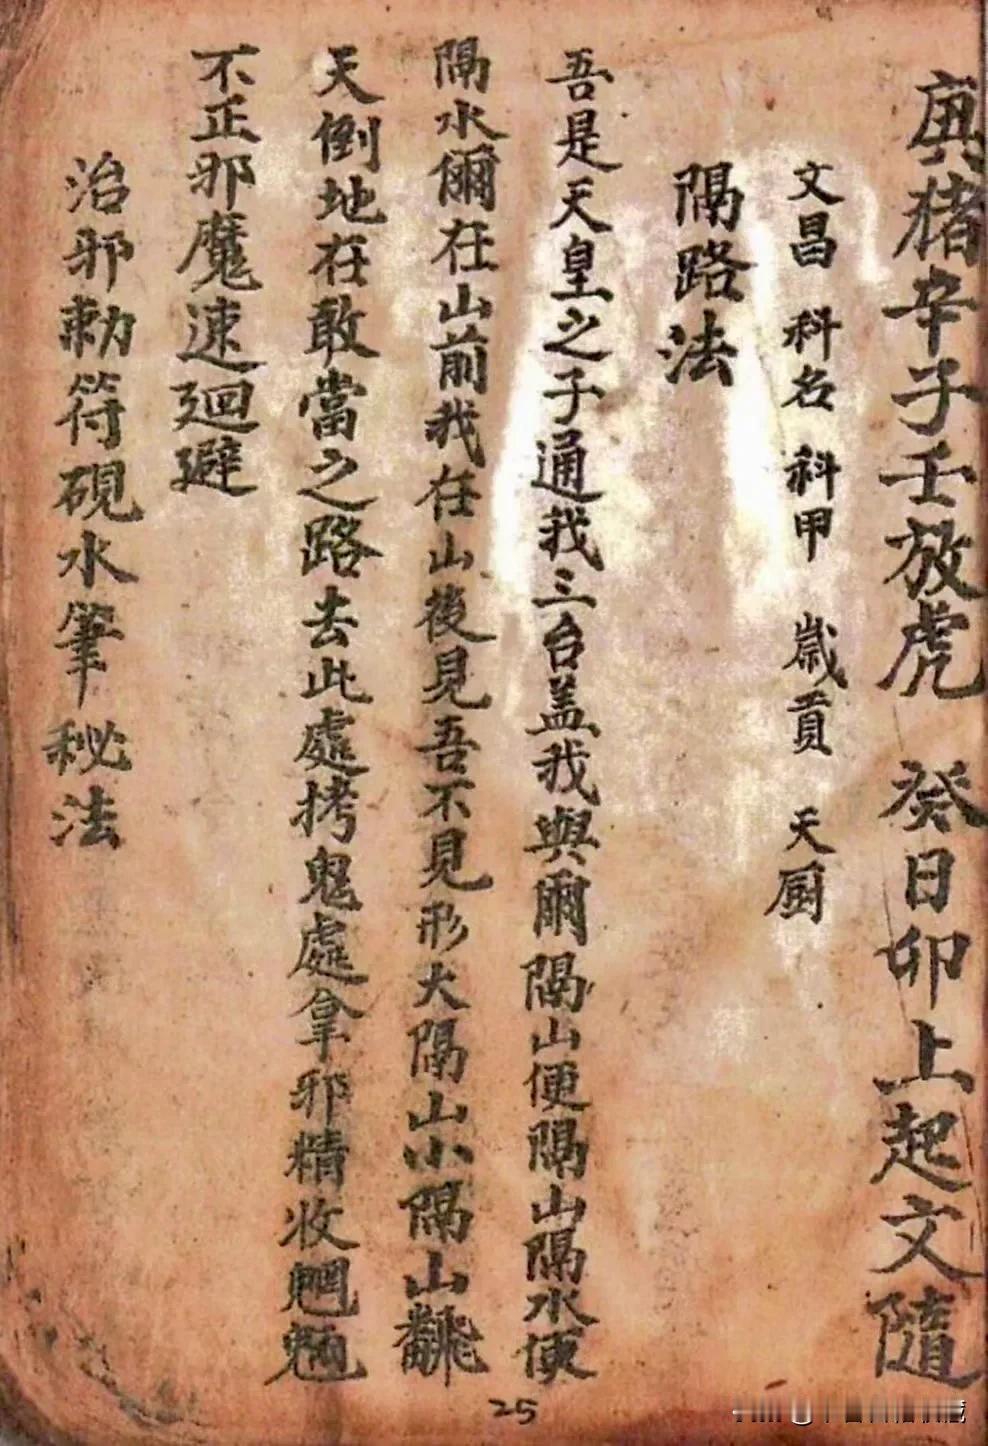 庚猪辛子壬放虎 癸日卯上起文隨
文昌 科名 科甲 歲貢 天厨
隔路法
吾是天皇之子通我三台盖我與爾隔山便隔山隔水便
隔水爾在山前我在山後見吾不見形大隔山小隔山飜
天倒地在敢當之路去此處拷鬼處拿邪精收魍魎
不正邪魔速迴避
治邪勅符硯水筆秘法
25